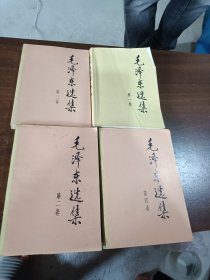 毛泽东选集
第三卷
毛泽东选集
第一卷
毛泽东选集
第二卷
毛泽东选集
第四卷